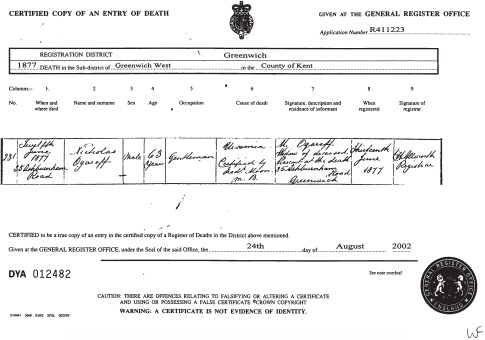 CERTIFIED COPY OF AN ENTRY OF DEATH
GIVEN AT THE GENERAL REGISTER OFFICE
Application Number R411223
REGISTRATION DISTRICT Greenwich
1877 DEATH in the Sub-district of Greenwich West in the County of Kent
Columns:- 1 2 3 4 5 6 7 8 9
No. When and where died Name and surname Sex Age Occupation Cause of death Signature, description and residence of informant When registered Signature of registrar
231 Twelfth June 1877 35 Ashburnham Road
Nicholas Ogareff
Male
63 Years
Gentleman
Uraemia Certified by M.B.
M. Ogareff. Widow of deceased Present at the death 35 Ashburnham Road Greenwich
Thirteenth June 1877
Registrar
CERTIFIED to be a true copy of an entry in the certified copy of a Register of Deaths in the District above mentioned.
Given at the GENERAL REGISTER OFFICE, under the Seal of the said Office, the 24th day of August 2002
DYA 012482
See note overleaf
CAUTION: THERE ARE OFFENCES RELATING TO FALSIFYING OR ALTERING A CERTIFICATE
AND USING OR POSSESSING A FALSE CERTIFICATE ©CROWN COPYRIGHT
WARNING: A CERTIFICATE IS NOT EVIDENCE OF IDENTITY.
GENERAL REGISTER OFFICE ENGLAND